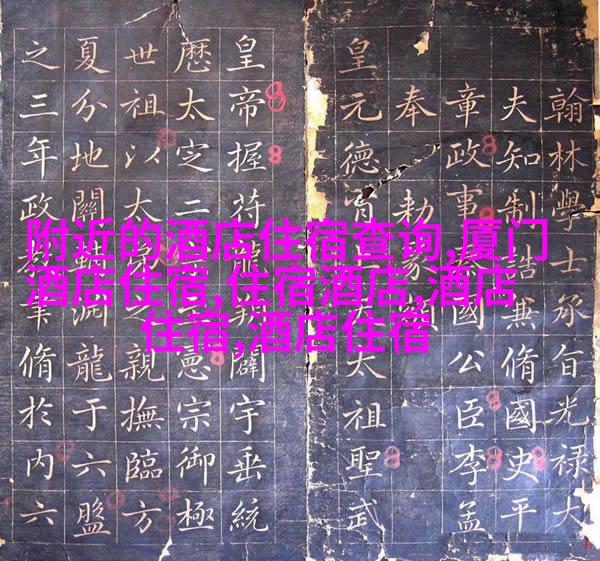 附近的酒店住宿查询,厦门
酒店住宿,住宿酒店,酒店
住宿,酒店住宿
翰林學士承旨光祿大
夫知制誥兼脩國史平
章政事國公臣李孟
奉勅
皇元德太祖聖武
皇帝握符龍闢宇垂統
厯太定二憲宗御極
世祖以太之親撫臨方
夏分地關淵龍于六盤
之三年政脩於內六